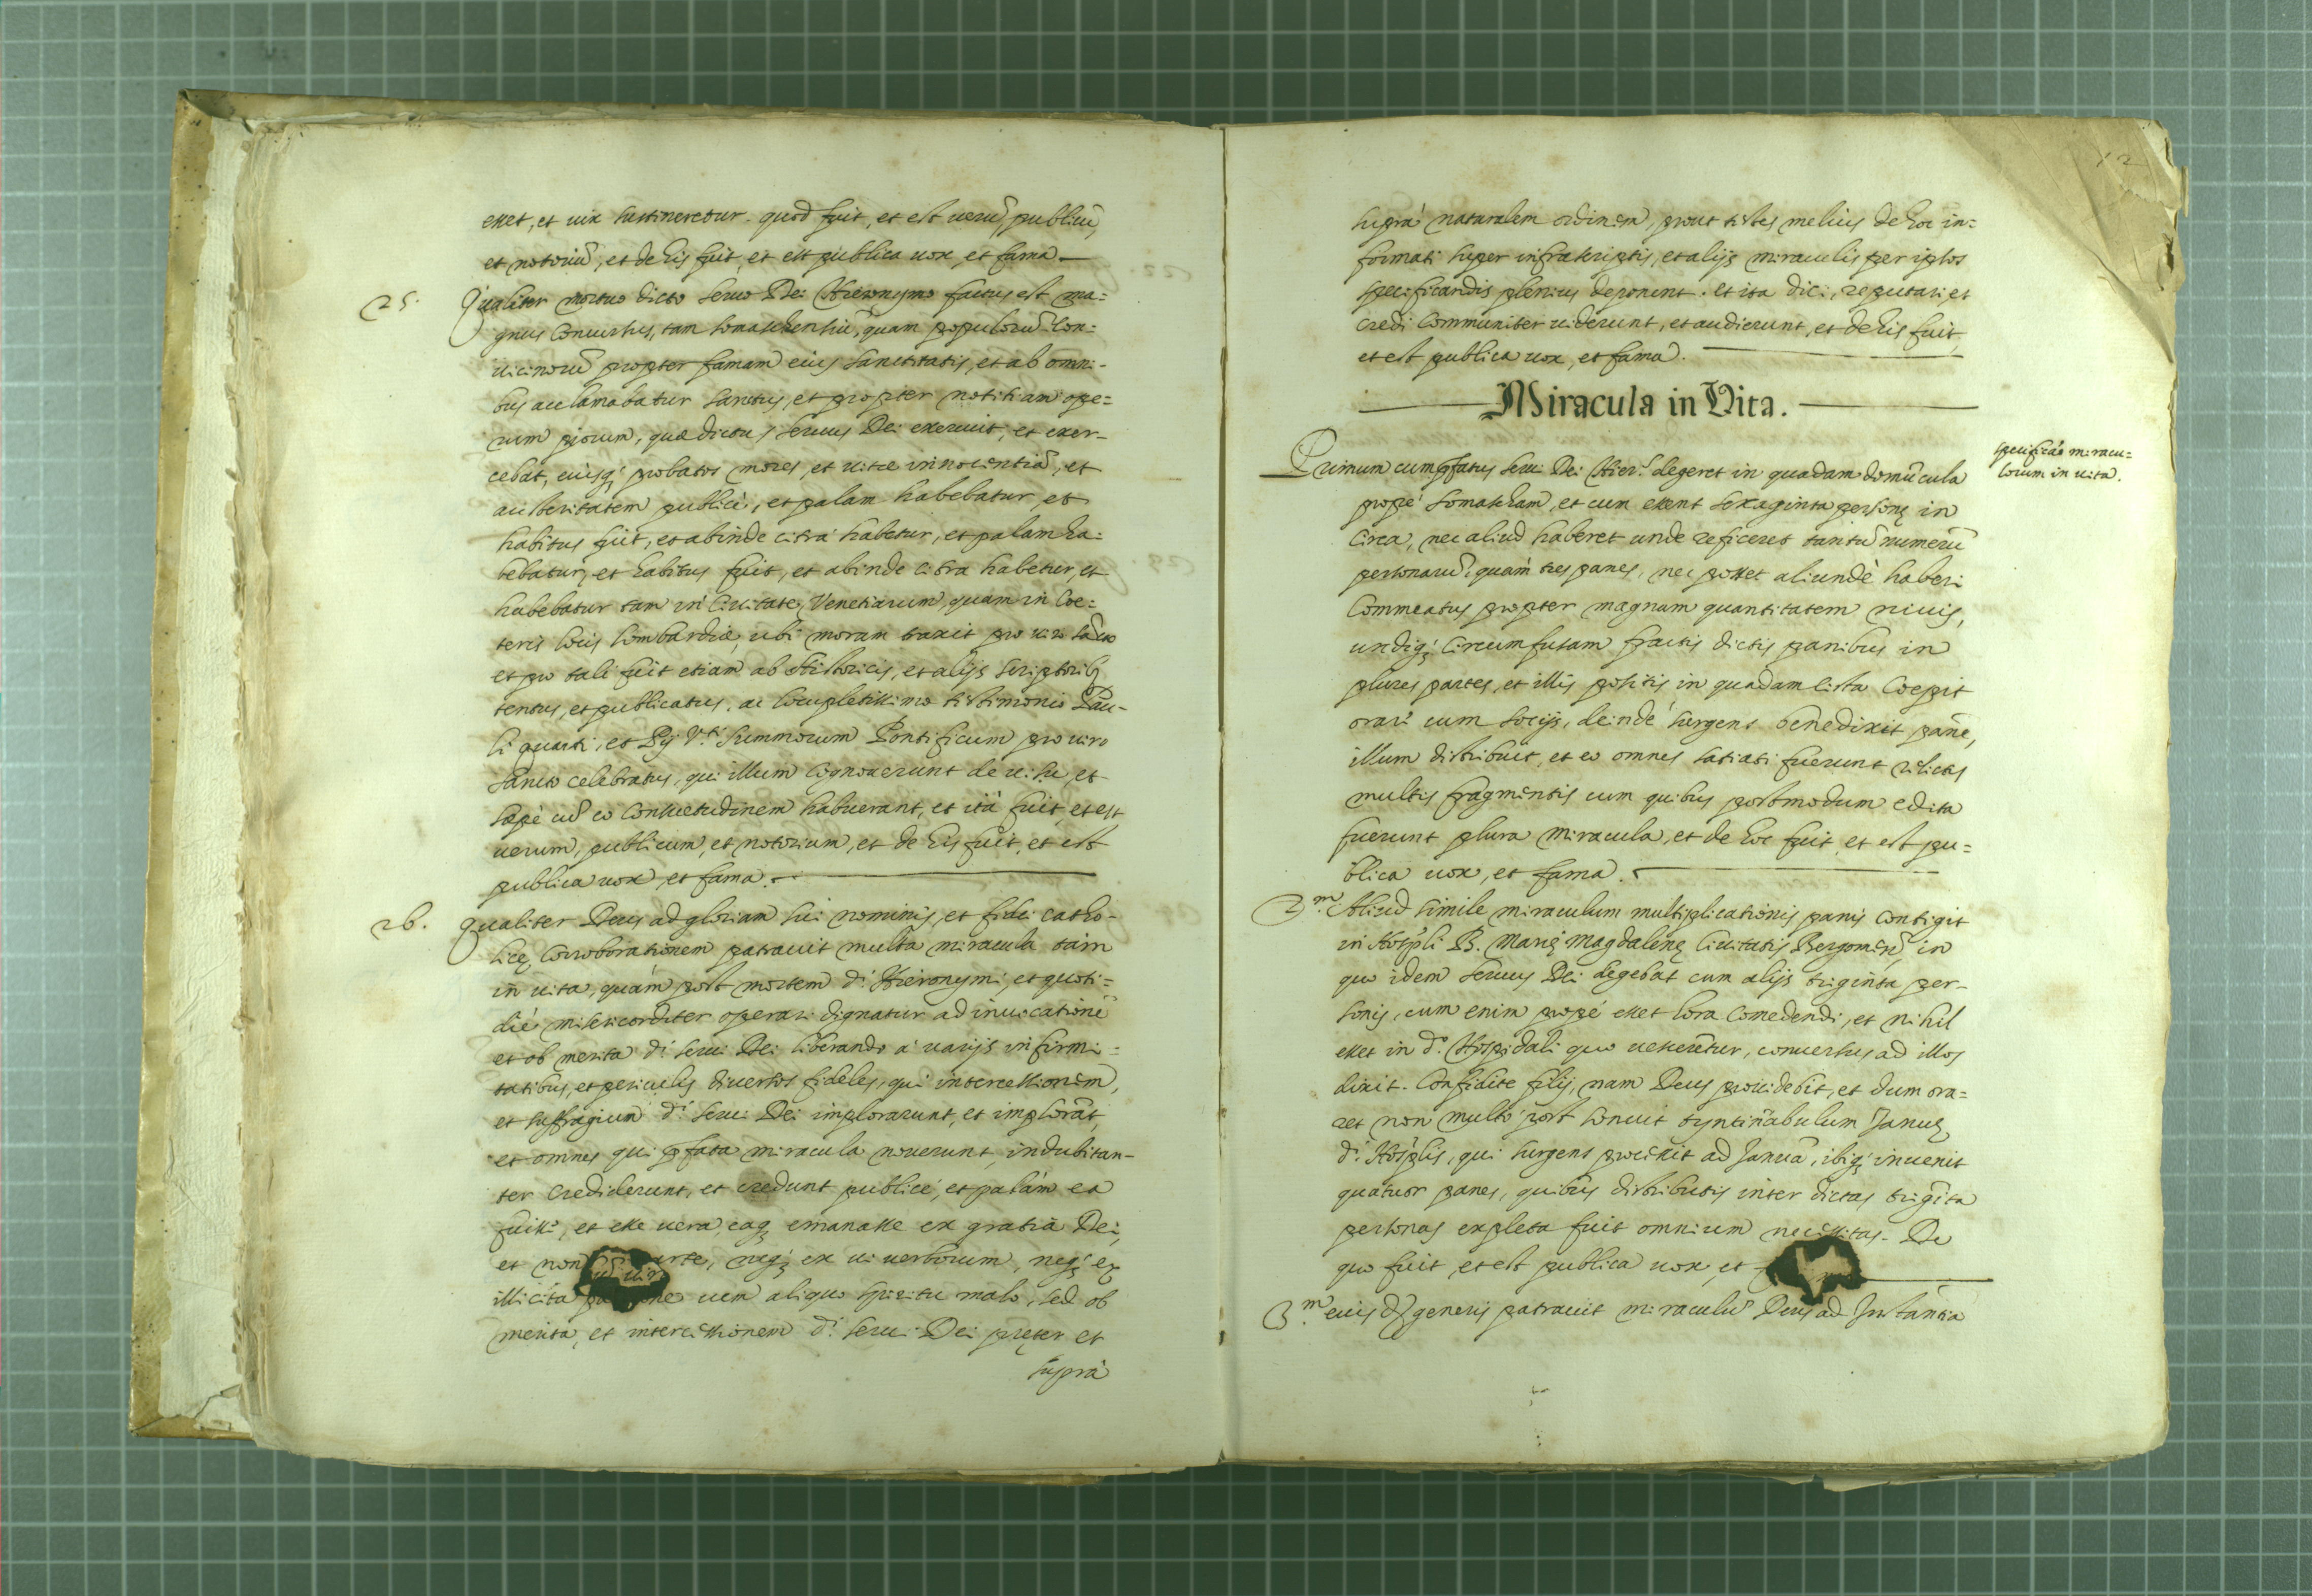 esset, et uix sustineretur. quod fuit, et est ueru͂, publicu͂,
et notoriu͂, et de his fuit, et est publica uox, et fama
25. Qualiter mortuo dicto seruo Dei Hieronymo factus est ma=
gnus concursus, tam somaschensiu͂, quam populoru͂ con-
uicinoru͂ propter famam eius sanctitatis, et ab omni-
bus acclamabatur sanctus, et propter notitiam ope=
rum piorum, quæ dictus seruus Dei exercuit, et exer-
cebat, eiusq; probatos mores, et uitæ innocentia͂, et
austeritatem publicè, et palam habebatur, et
habitus fuit, et abinde citrà habetur, et palam ha=
bebatur, et habitus fuit, et abinde citra habetur, et
habebatur tam in Ciuitate Venetiarum, quam in Coe=
teris locis Lombardiæ, ubi moram traxit pro uiro sa͂cto
et pro tali fuit etiam ab Historicis, et alijs scriptorib;
tentus, et publicatus, ac locupletissimo testimonio Pau-
li quarti, et Pij V.ti Summorum Pontificum pro uiro
sancto celebratus, qui illum cognouerunt de uisu, et
sæpè cu͂ eo consuetudinem habuerant, et ità fuit, et est
uerum, publicum, et notorium, et de his fuit, et est
publica uox, et fama.
26. Qualiter Deus ad gloriam sui nominis, et fidei catho-
licę corroborationem patrauit multa miracula tàm
in uita, quàm post mortem d.i Hieronymi, et quoti=
diè misericorditer operari dignatur ad inuocatione͂
et ob merita d.i serui Dei liberando à uarijs infirmi=
tatibus, et periculis diuersos fideles, qui intercessionem,
et suffragium d.i serui Dei implorarunt, et implora͂t,
et omnes qui p̃fata miracula nouerunt, indubitan-
ter crediderunt, et credunt publicè, et palàm ea
fuisse, et esse uera, eaq; emanasse ex gratia Dei,
et non arte, neq; ex ui uerborum, neq; ex
illicita uem aliquo spiritu malo, sed ob
merita, et intercessionem d.i serui Dei pręter et
suprà
12
suprà naturalem ordinem, prout testes melius de hoc in=
formati super infrascriptis, et alijs miraculis per ipsos
specificandis plenius deponent. et ita dici, reputari, et
credi communiter uiderunt, et audierunt, et de his fuit,
et est publica uox, et fama.
Miracula in Vita.
specificãо miracu-
lorum in uita.
Primum cum p̃fatus seru. Dei Hier.s degeret in quadam domu͂cula
propè somascham, et cum essent sexaginta personę in
circa, nec aliud haberet unde reficeret tantu͂ numeru͂
personaru͂, quàm tres panes, nec posset aliundè haberi
Commeatus propter magnam quantitatem niuis,
undiq; circumfusam fractis dictis panibus in
plures partes, et illis positis in quadam cista coepit
orare cum socijs, deindè surgens benedixit pane͂,
illum distribuit, et eo omnes satiati fuerunt relictis
multis fragmentis cum quibus postmodum edita
fuerunt plura miracula, et de hoc fuit, et est pu=
blica uox, et fama.
2.m Aliud simile miraculum multiplicationis panis contigit
in Hosp̃li B. Marię Magdalenę Ciuitatis Bergomen͂, in
quo idem seruus Dei degebat cum alijs triginta per-
sonis, cum enim propè esset hora comedendi, et nihil
esset in d.o Hospidali quo uesceretur, conuersus ad illos
dixit. Confidite filij, nam Deus prouidebit, et dum ora=
ret non multò post sonuit tyntinabulum Januę
d.i Hosp̃lis, qui surgens processit ad Janua͂, ibiq; inuenit
quatuor panes, quibus distributis inter dictas trig͂ita
personas expleta fuit omnium necessitas. De
quo fuit, et est publica uox, et
3.m eiusd; generis patrauit miraculu͂ Deus ad Instantia